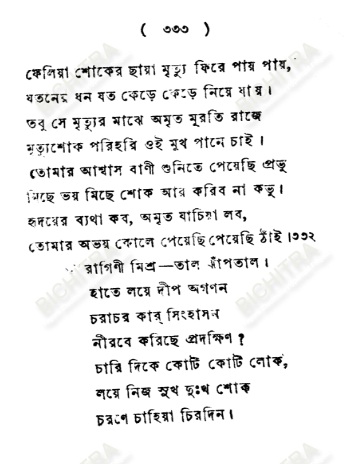 ( ৩৩৩ )
ফেলিয়া শোকের ছায়া মৃত্যু ফিরে পায় পায়,
যতনের ধন যত কেড়ে কেড়ে নিয়ে যায়।
তবু সে মৃত্যুর মাঝে অমৃত মূরতি রাজে
মৃত্যুশোক পরিহরি ওই মুখ পানে চাই।
তোমার আশ্বাস বাণী শুনিতে পেয়েছি প্রভু
মিছে ভয় মিছে শোক আর করিব না কভু।
হৃদয়ের ব্যথা কব, অমৃত যাচিয়া লব,
তোমার অভয় কোলে পেয়েছি পেয়েছি ঠাঁই।৩৩২
রাগিণী মিশ্র—তাল ঝাঁপতাল।
হাতে লয়ে দীপ অগণন
চরাচর কার্ সিংহাসন
নীরবে করিছে প্রদক্ষিণ?
চারি দিকে কোটি কোটি লোক,
লয়ে নিজ সুখ দুঃখ শোক
চরণে চাহিয়া চিরদিন।
BICHITRA
BICHITRA
BICHITRA
BICHITRA